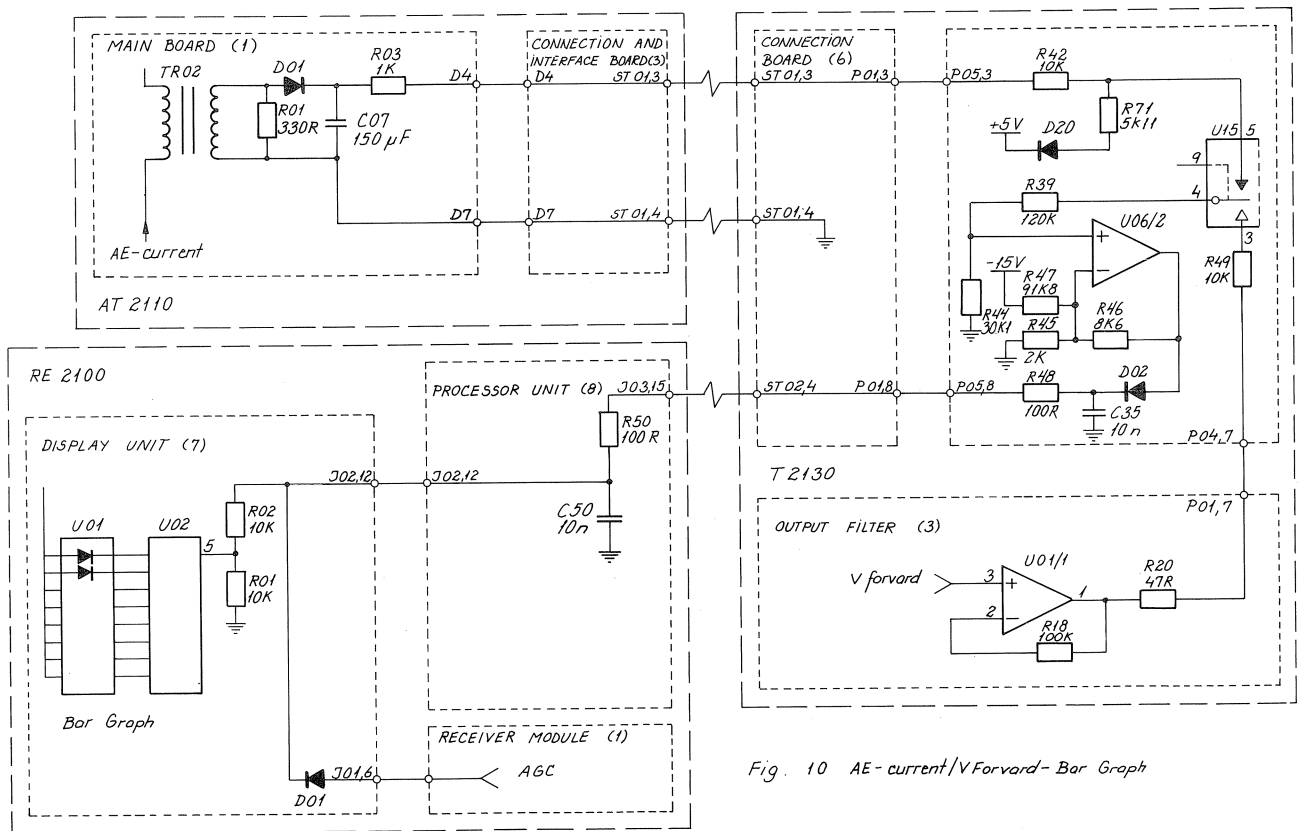 MAIN BOARD (1)
TR02
D01
R03
1K
R01
330R
C07
150 µF
D4
D7
AE-current
AT 2110
CONNECTION AND
INTERFACE BOARD(3)
D4
ST 01,3
D7
ST 01,4
CONNECTION
BOARD (6)
ST 01,3
P01,3
ST 01,4
ST 02,4
P01,8
P05,3
R42
10K
R71
5K11
+5V
D20
U15
5
9
4
3
R39
120K
U06/2
+
−
-15V
R47
91K8
R44
30K1
R45
2K
R46
8K6
R49
10K
P05,8
R48
100R
D02
C35
10n
P04,7
T 2130
P01,7
OUTPUT FILTER (3)
V forvard
3
+
2
−
U01/1
1
R18
100K
R20
47R
RE 2100
PROCESSOR UNIT (8)
J03,15
R50
100R
J02,12
C50
10n
DISPLAY UNIT (7)
J02,12
U01
U02
5
R02
10K
R01
10K
Bar Graph
D01
J01,6
RECEIVER MODULE (1)
AGC
Fig. 10 AE-current/V Forvard-Bar Graph